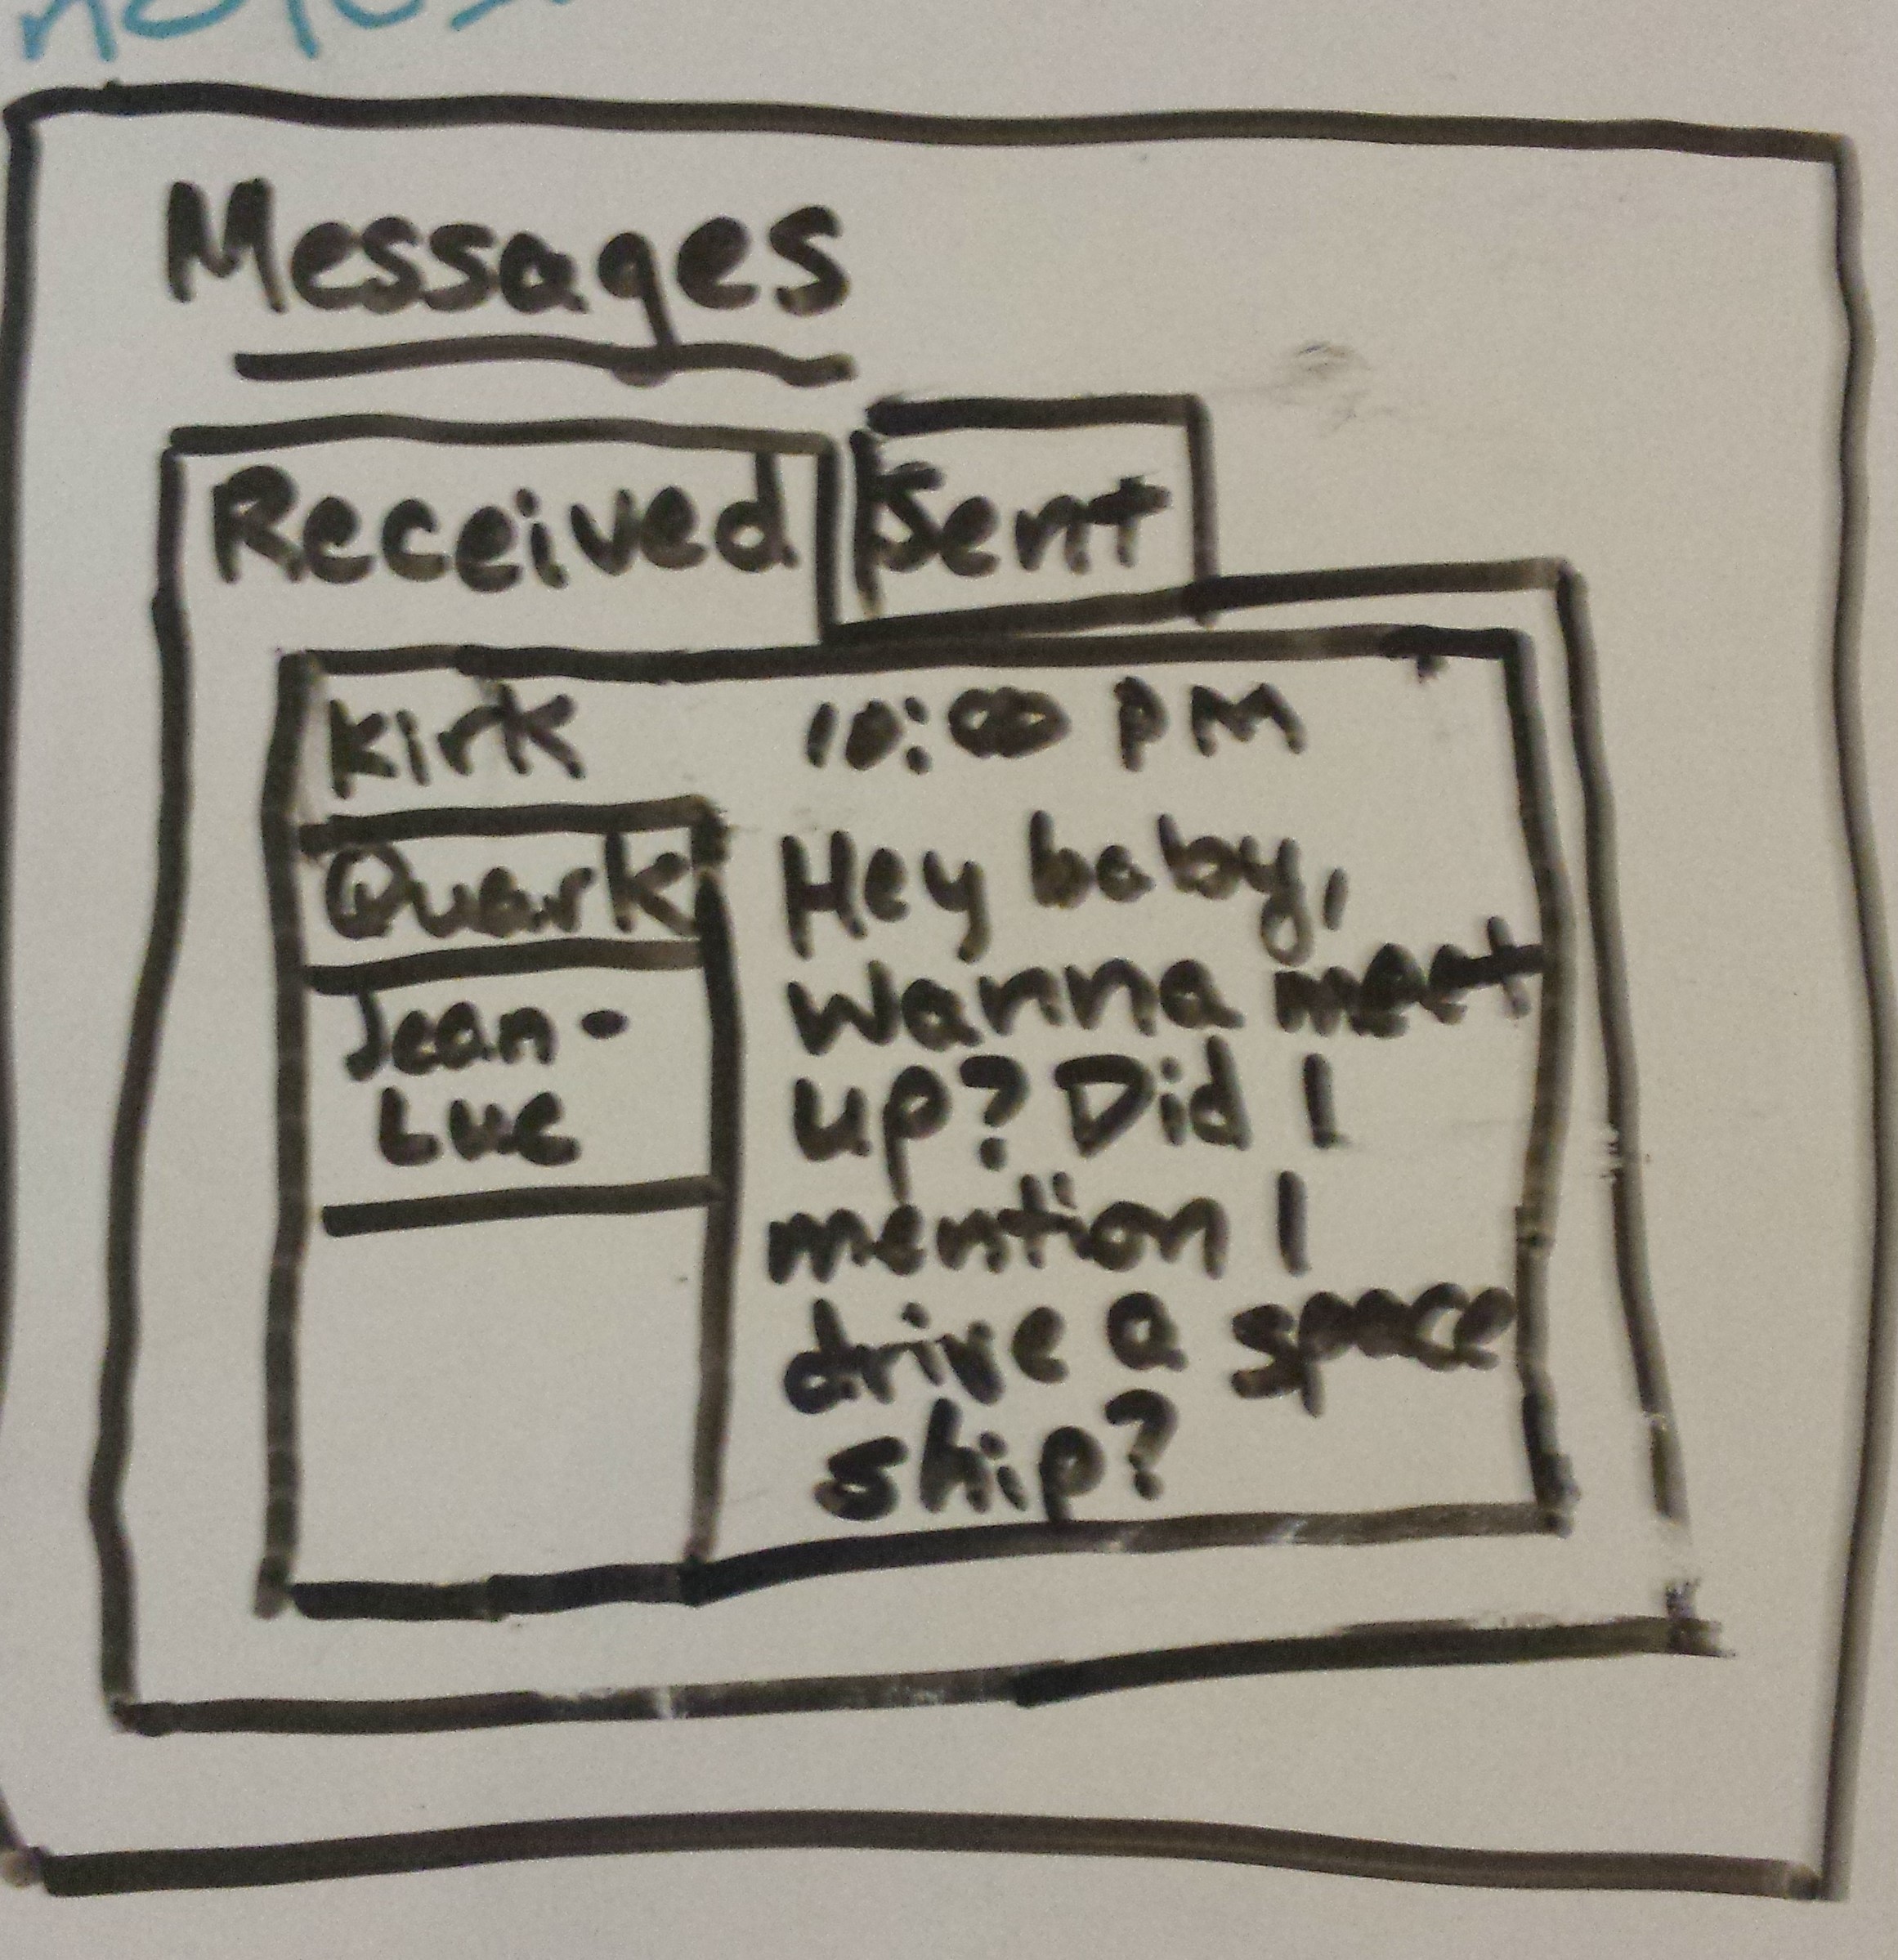 Messages
Received Sent
Kirk
Quark
Jean-
Luc
10:00 PM
Hey baby,
wanna meet
up? Did I
mention I
drive a space
ship?